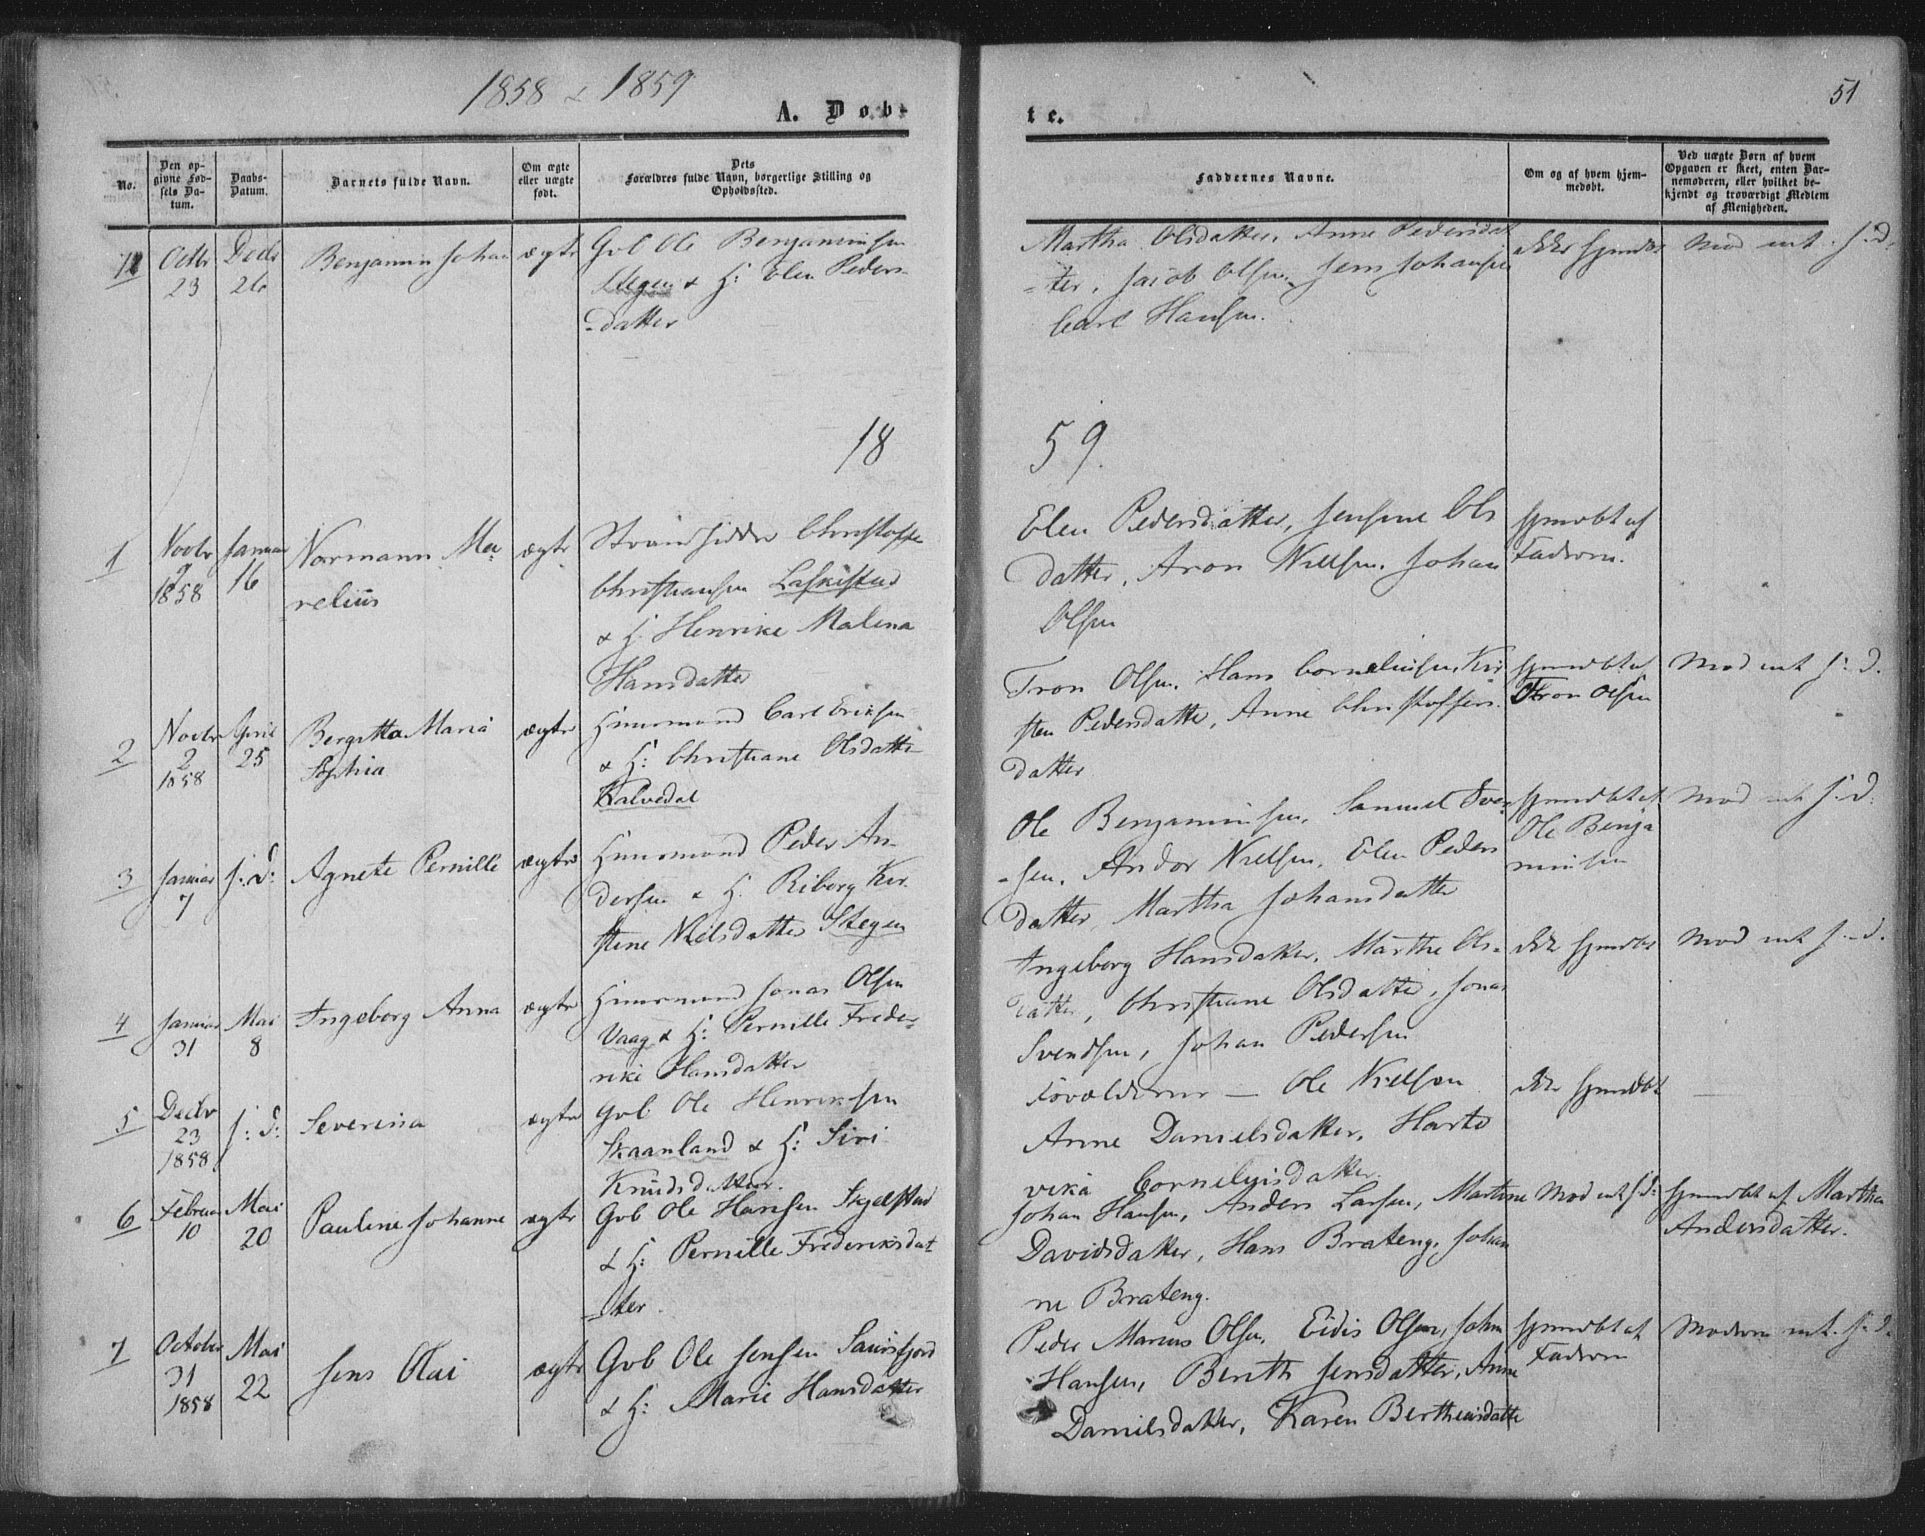 1858 & 1859
A. Døb-
te.
51
No.
Den op-
givne Fød-
sels Da-
tum.
Daabs-
Datum.
Barnets fulde Navn.
Om ægte
eller uægte
født.
Dets
Forældres fulde Navn, borgerlige Stilling og
Opholdssted.
Faddernes Navne.
Om og af hvem hjem-
medøbt.
Ved uægte Børn af hvem
Opgaven er skeet, enten Bar-
nemoderen, eller hvilket be-
kjendt og troværdigt Medlem
af Menigheden.
Octbr
23
Decbr
26
Benjamin Johan
ægte
Gvb Ole Benjaminsen
Stegen & H: Elen Peders-
-datter
Martha Olsdatter, Anne Pedersdat
-ter, Jacob Olsen, Jens Johansen
Carl Hansen.
ikke hjemdøbt
18
59.
1
Novbr
1858
Januar
16
Normann Ma-
relius
ægte
Strandsidder Christoffer
Christiansen
& H. Henrike Malena
Hansdatter
Elen Pedersdatter, Jensine Ols
datter, Aron Nielsen, Johan
Olsen
hjmdøbt af
Faderen.
2
Novbr
2
1858
April
25
Bergitta Maria
Sophia
ægte
Huusmand Carl Eriksen
& H: Christiane Olsdatter
Kalvedal
Tron Olsen, Hans Corneliusen, Kir
sten Pedersdatter, Anne Christoffers
datter
hjmdøbt af
Tron Olsen
3
Januar
7
s: D:
Agnete Pernille
ægte
Huusmand Peder An
dersen & H. Riborg Kir
stine Nielsdatter Stegen
Ole Benjaminsen, Samuel Iver
-sen, Andor Nielsen, Elen Peders
datter, Martha Johansdatter
hjmdøbt af
Ole Benja
minsen
4
Januar
31
Mai
8
Ingeborg Anna
ægte
Huusmand Jonas Olsen
Vaag & H: Pernille Frede-
rike Hansdatter
Ingeborg Hansdatter, Marthe Ols-
datter, Christiane Olsdatter, Jonas
Svendsen, Johan Pedersen
ikke hjemdøbt
5
Decbr
23
1858
s: D:
Severina
ægte
Gvb Ole Henriksen
Skaanland & H: Siri
Knudsdatter.
Forældrene — Ole Nielsen
Anne Danielsdatter, Hart
vika Corneliusdatter
ikke hjemdøbt
6
Februar
10
Mai
20
Pauline Johanne
ægte
Gvb Ole Hansen Skjelstad
& H: Pernille Frederiksdat
-ter.
Johan Hansen, Anders Larsen, Martine
Davidsdatter, Hans Brateng, Johan
ne Brateng.
hjmdøbt af Martha
Andersdatter.
7
October
31
1858
Mai
22
Jens Olai
ægte
Gvb Ole Jensen
& H: Marie Hansdatter
Peder Marius Olsen, Eidis Olsen, John
Hansen, Berith Jensdatter, Anne
Danielsdatter, Karen Bertheusdatte
hjmdøbt af
Faderen